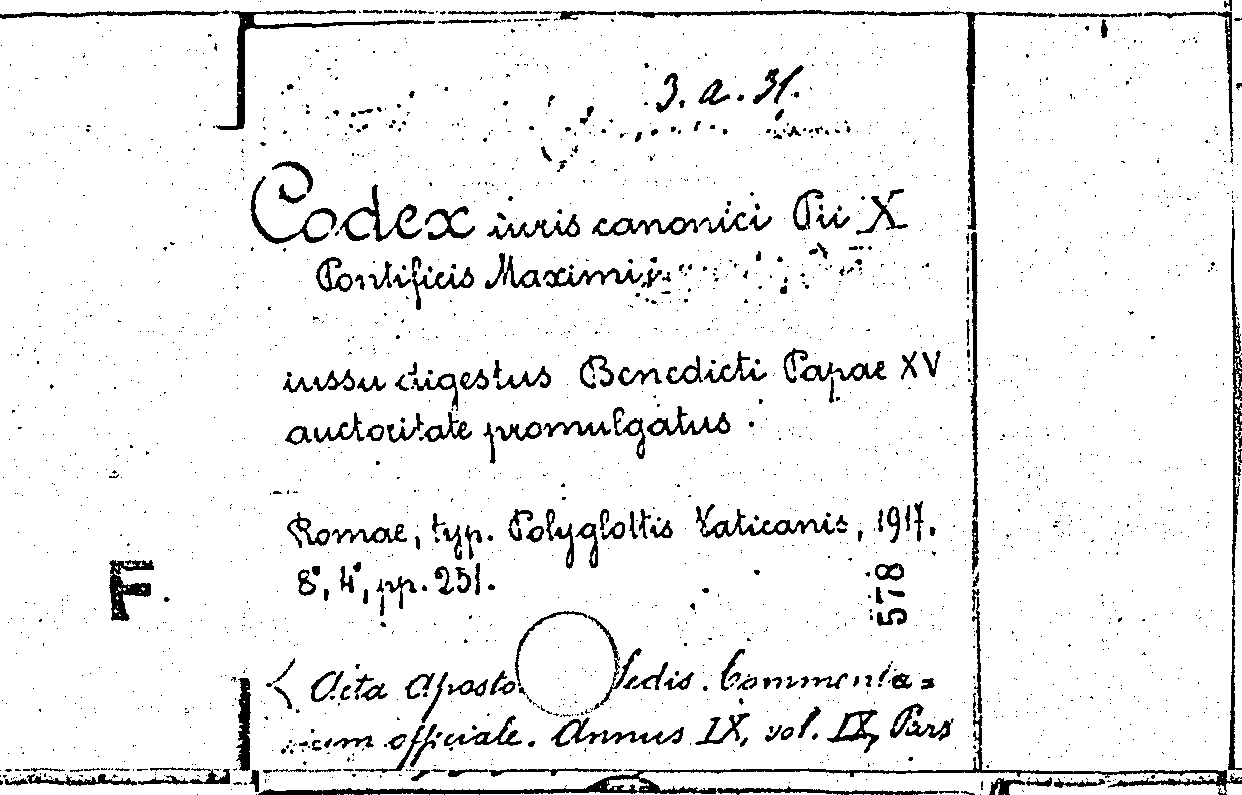 3. a. 31.
Codex iuris canonici Pii X
Pontificis Maximi
iussu digestus Benedicti Papae XV
auctoritate promulgatus.
Romae, typ. Polyglottis Vaticanis, 1917.
8°, 4°, pp. 251.
578
F
< Acta Aposto Sedis. Commenta=
rium officiale. Annus IX, vol. IX, Pars